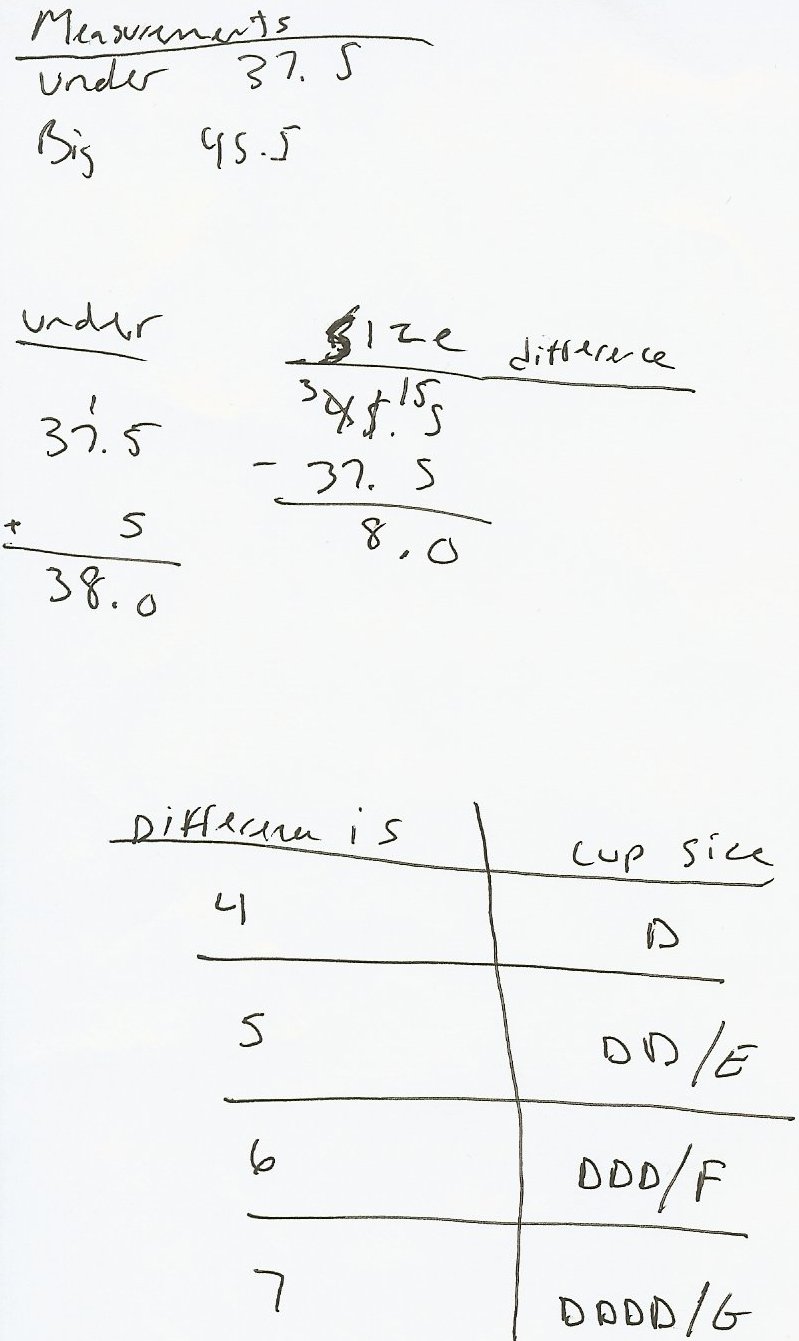 Measurements
under 37.5
Big 45.5
under
1
37.5
+ 5
38.0
size difference
3 15
45.5
- 37.5
8.0
Difference is cup size
4 D
5 DD/E
6 DDD/F
7 DDDD/G